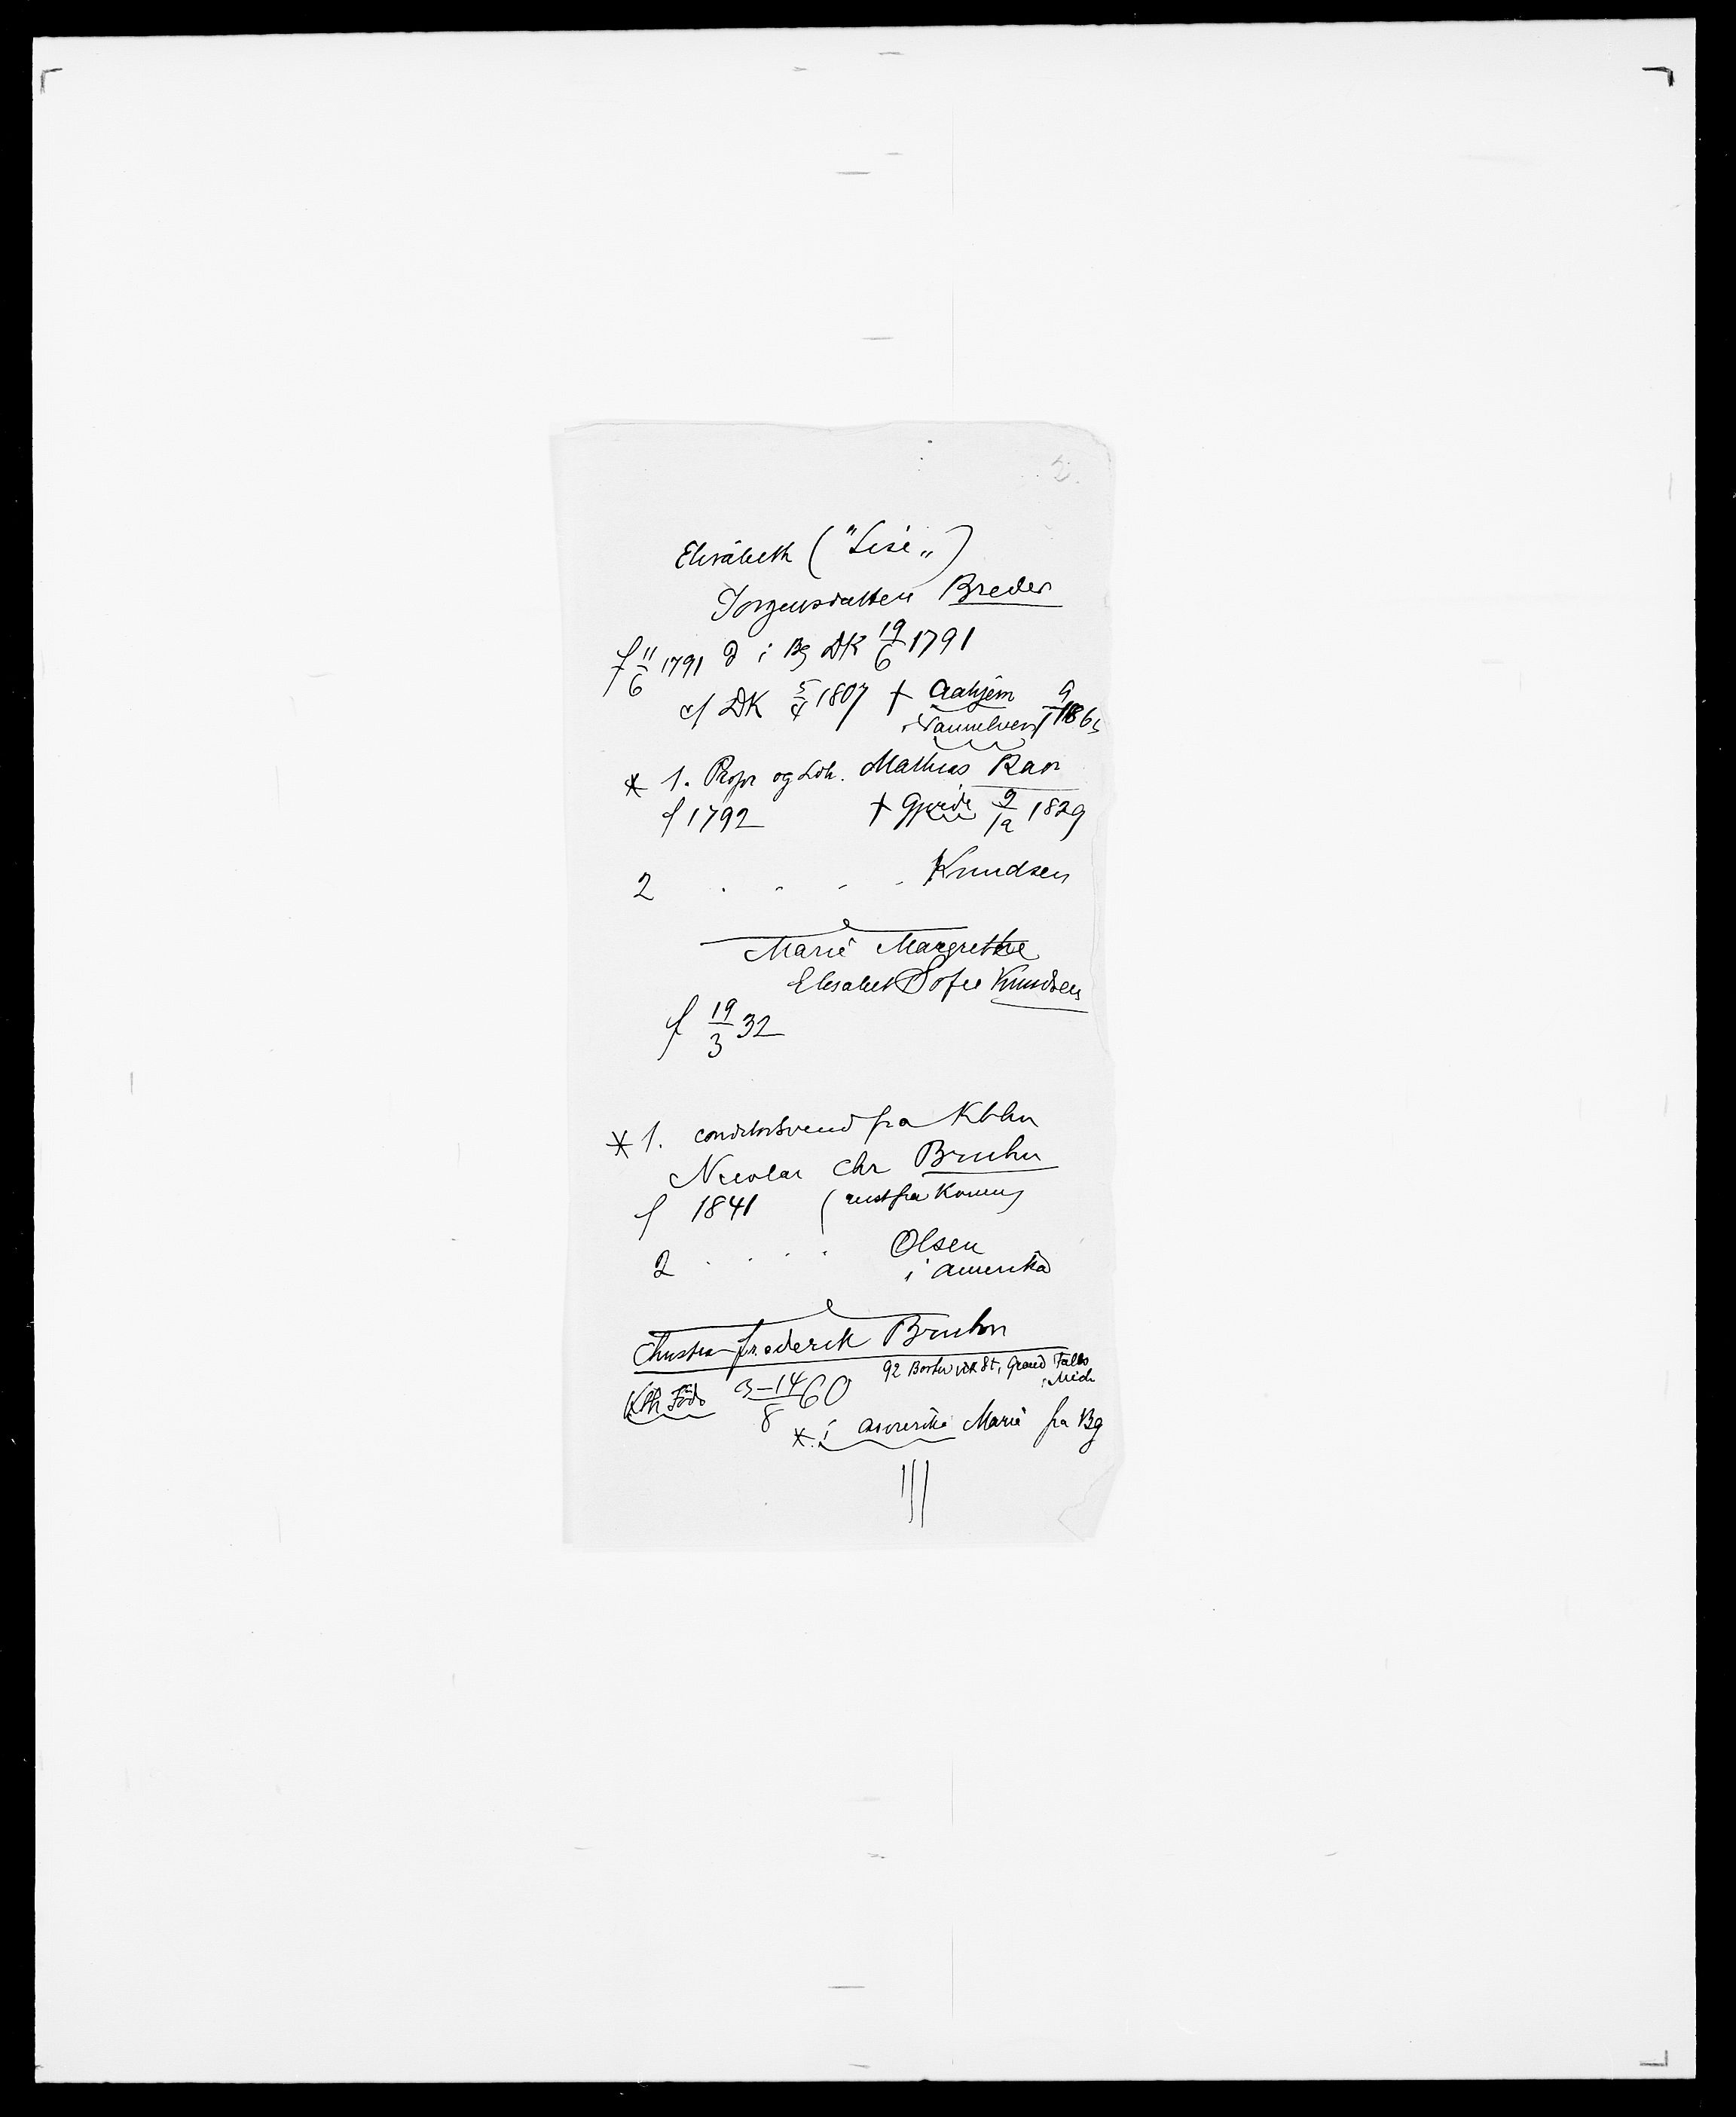 2.
Elisabeth ("Lise")
Jørgensdatter Breder
f 11/6 1791 d i Bg DK 19/6 1791
cf DK 5/4 1807 † Aahjem
i Vannelven 9/1 186
* 1. Propr og Mathias Rav
f 1792 † Gjerde 9/12 1829
2 . - - - Knudsen
Marie Margrethe
Elisabet Sofie Knudsen
f 19/3 32
* 1. conditorsvend fra Kbhn
Nicolai Chr Bruhn
f 1841 (
2 . . . . Olsen
i Amerika
Christian Frederik Bruhn
92 St, Grand Falls
Mich
3-14/8 60
* i Amerika Marie fra Bg